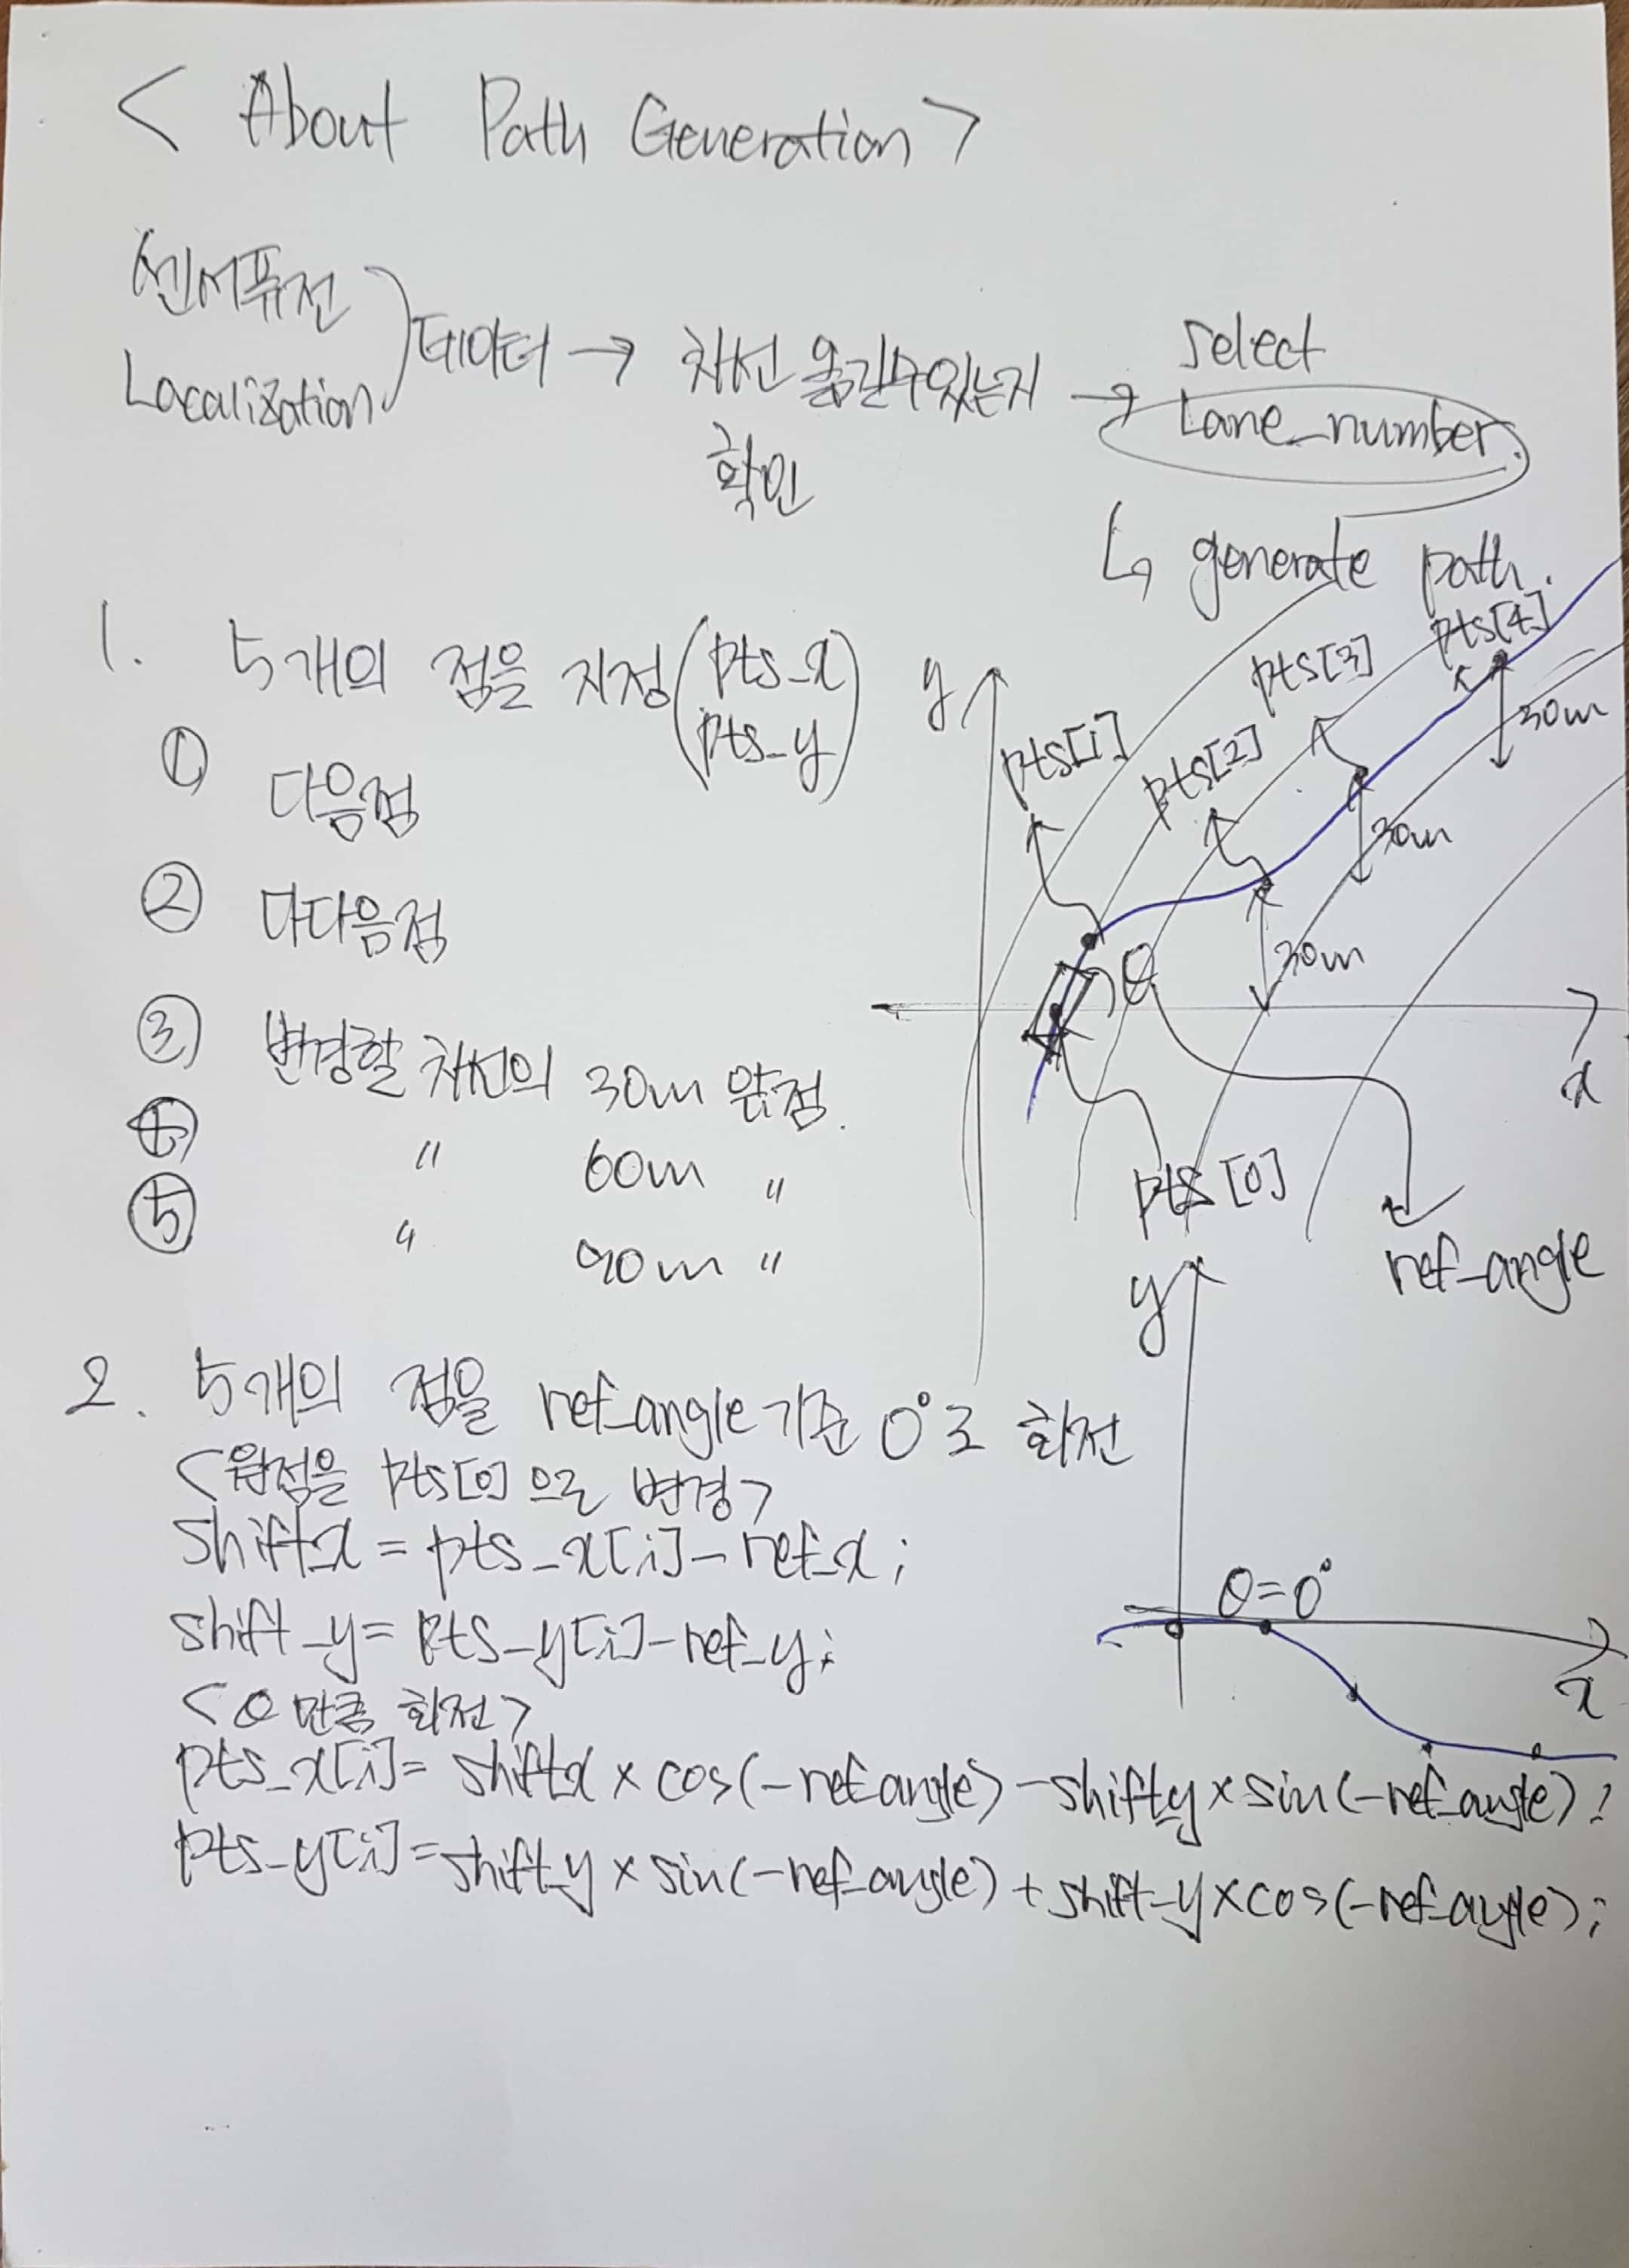 < About Path Generation >
센서퓨전
Localization
데이터 → 차선 옮길수있는지
확인
→ select
Lane_number
↳ generate path.
1. 5개의 점을 지정 (pts_x
pts_y)
① 다음점
② 다다음점
③ 변경할 차선의 30m 앞점.
④ " 60m "
⑤ " 90m "
y
pts[1]
pts[2]
pts[3]
pts[4]
30m
30m
30m
θ
x
pts[0]
ref_angle
2. 5개의 점을 ref_angle기준 0°로 회전
<원점을 pts[0]으로 변경>
shift_x = pts_x[i] - ref_x;
shift_y = pts_y[i] - ref_y;
<θ만큼 회전>
pts_x[i] = shift_x × cos(-ref_angle) - shift_y × sin(-ref_angle);
pts_y[i] = shift_y × sin(-ref_angle) + shift_y × cos(-ref_angle);
y
θ = 0°
x